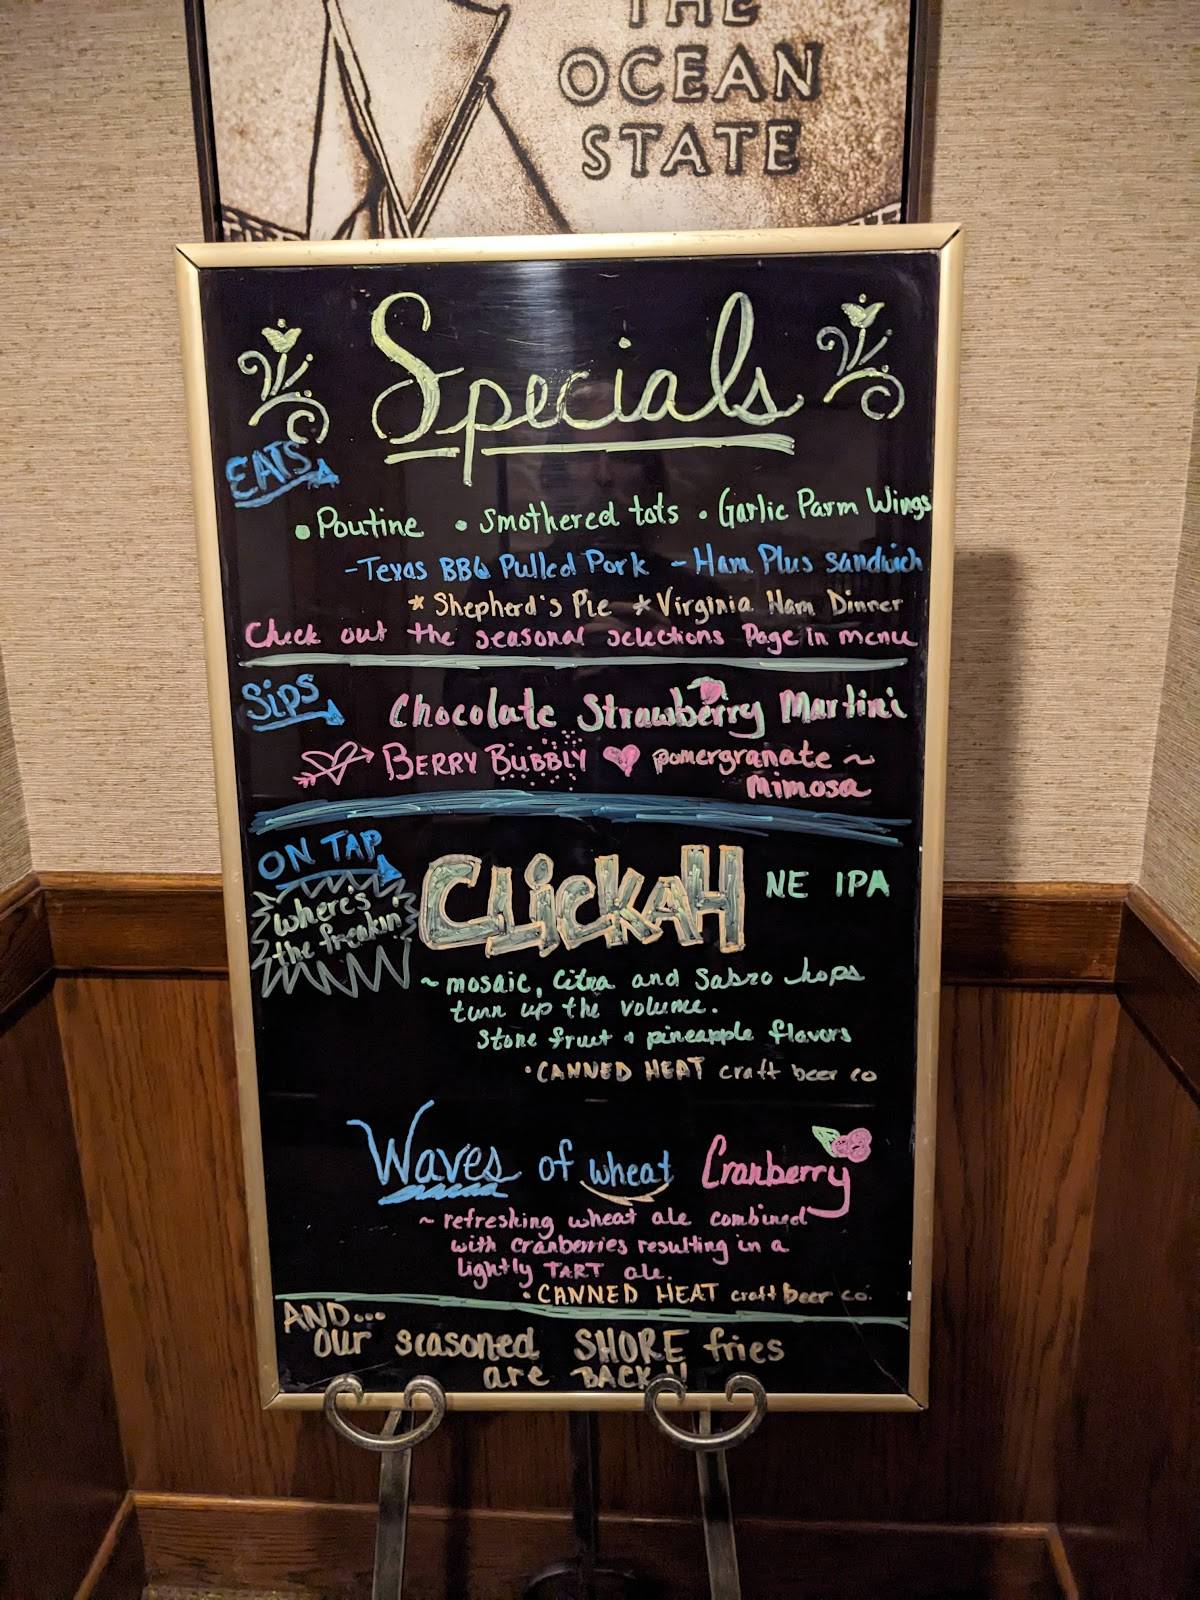 THE
OCEAN
STATE
Specials
EATS
• Poutine • Smothered tots • Garlic Parm Wings
- Texas BBQ Pulled Pork - Ham Plus Sandwich
* Shepherd's Pie * Virginia Ham Dinner
Check out the seasonal selections Page in menu
Sips
Chocolate Strawberry Martini
BERRY BUBBLY pomergranate ~
Mimosa
ON TAP
where's
the freakin'
CLickAH NE IPA
~ mosaic, Citra and Sabro hops
turn up the volume.
Stone fruit & pineapple flavors
• CANNED HEAT craft beer co
Waves of wheat Cranberry
~ refreshing wheat ale combined
with cranberries resulting in a
lightly TART ale.
• CANNED HEAT craft beer co.
AND...
our seasoned SHORE fries
are BACK!!